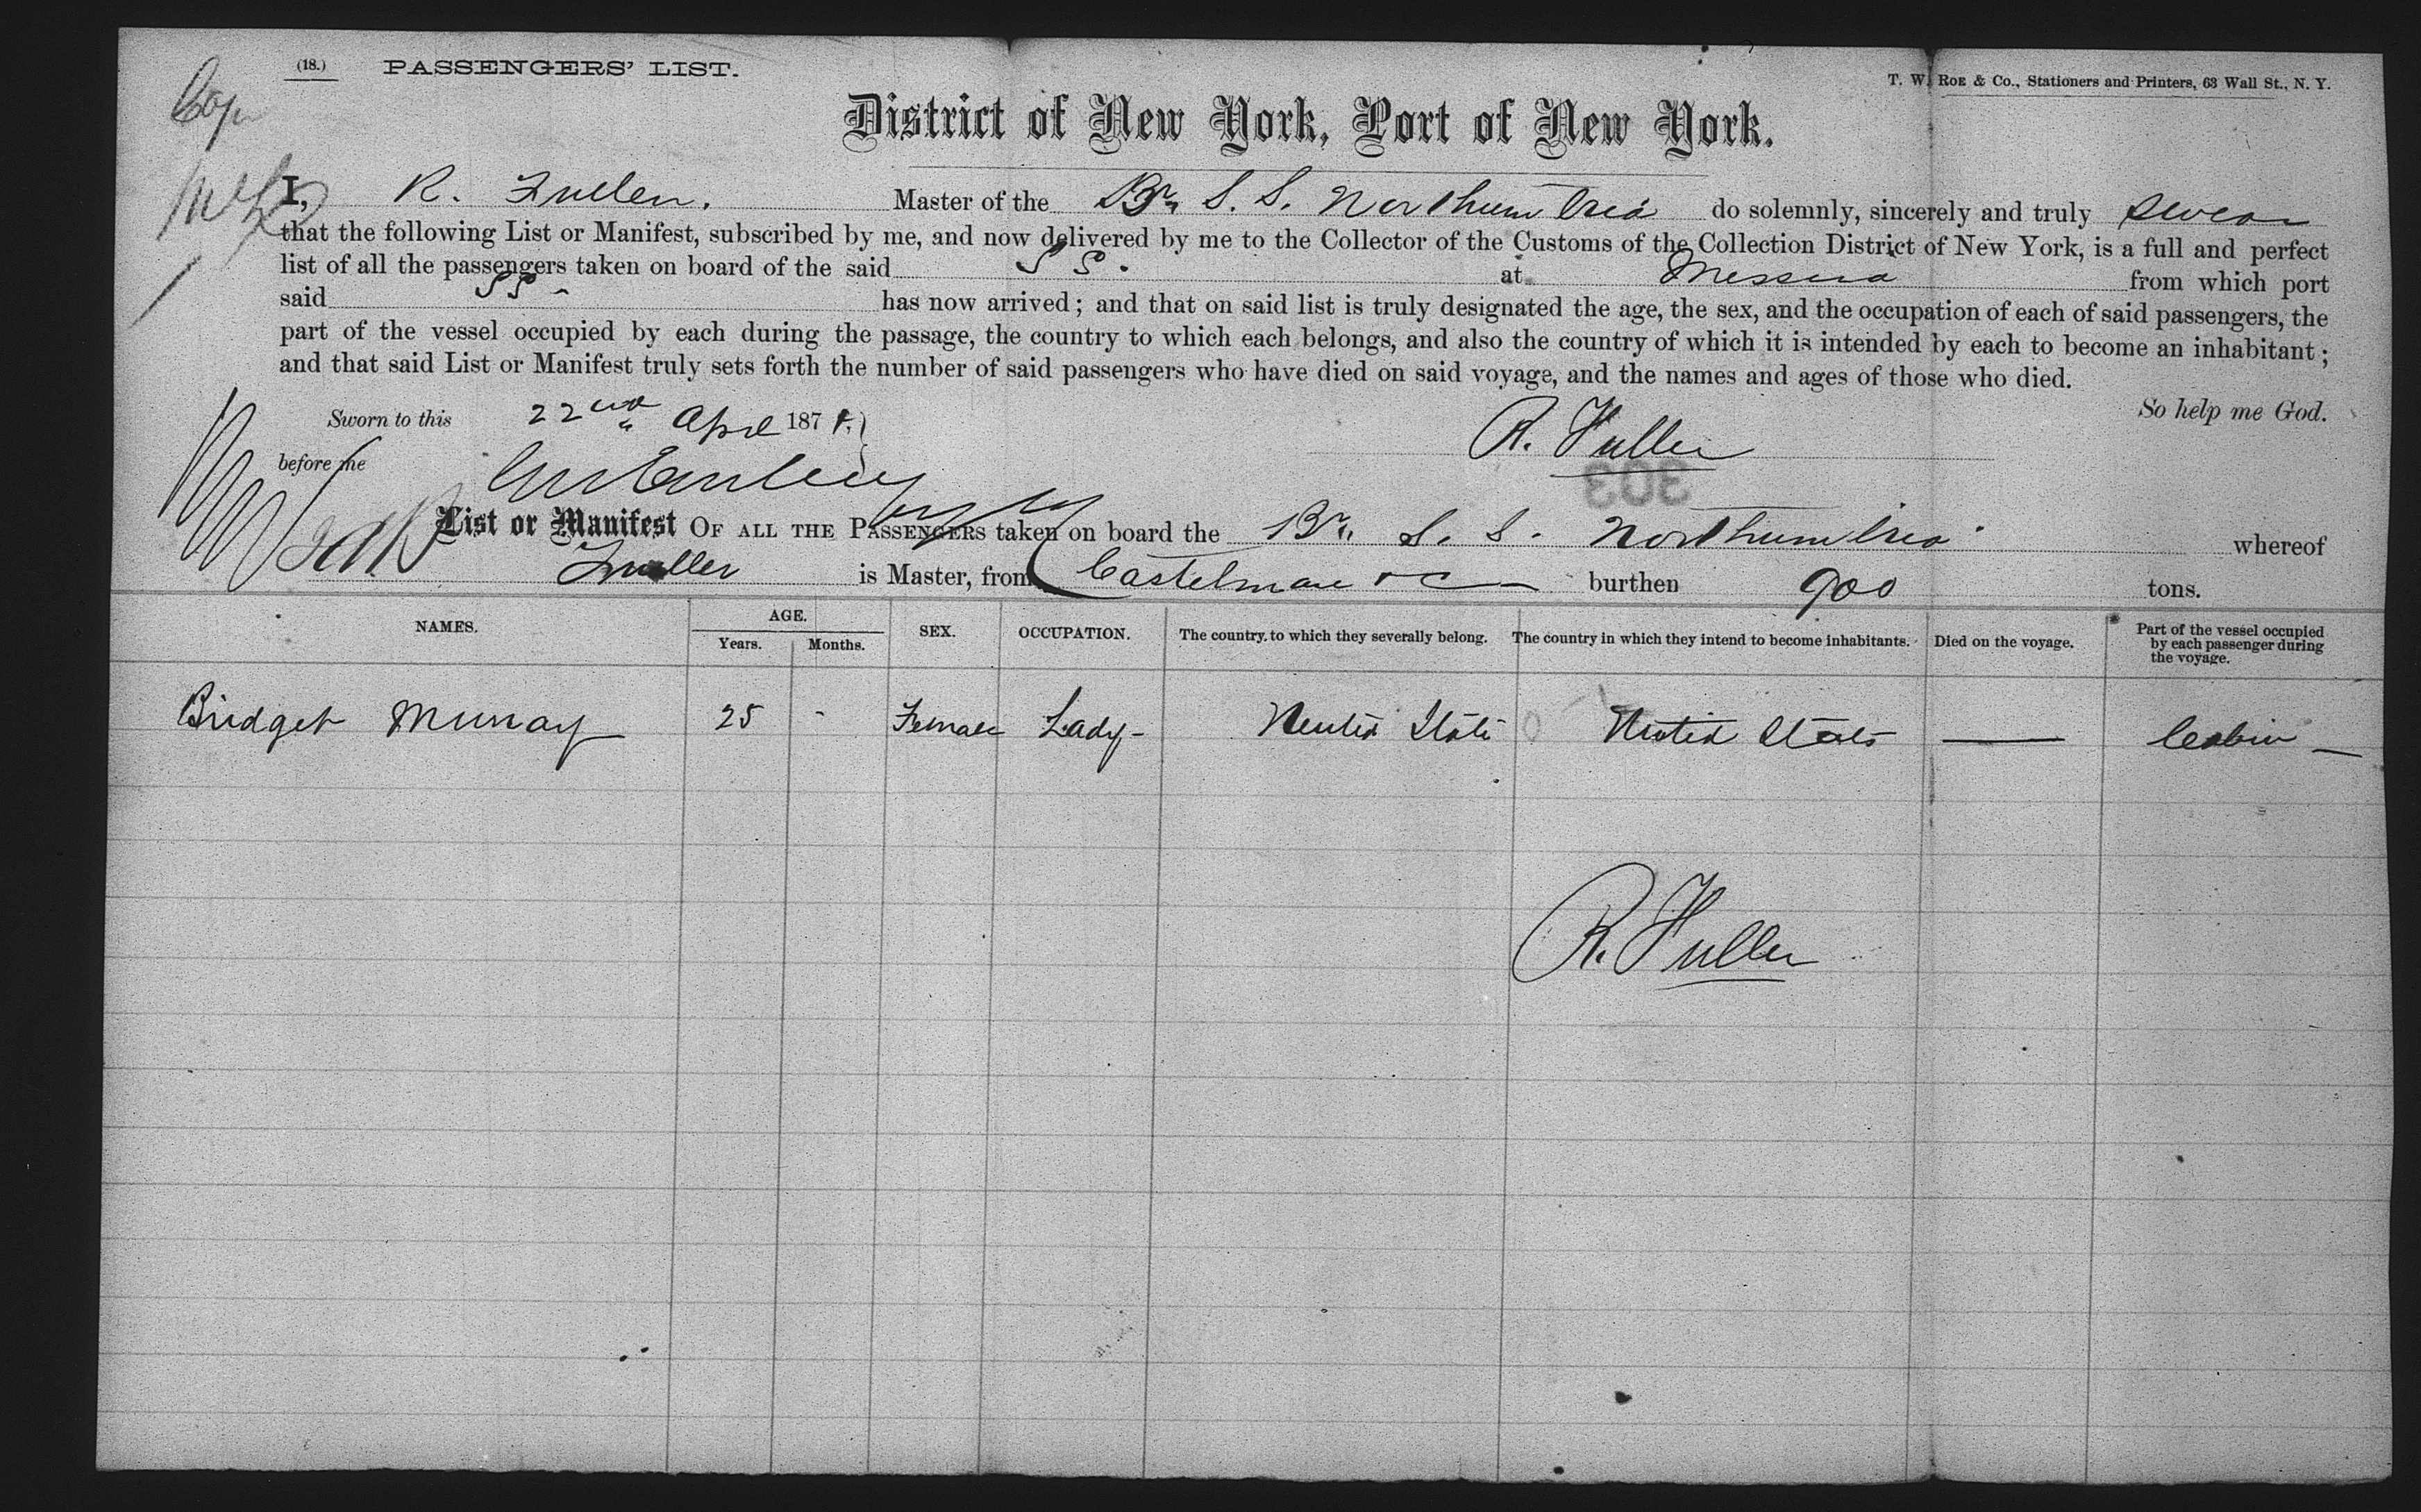 (18.) PASSENGERS' LIST.
T. W. ROE & Co., Stationers and Printers, 63 Wall St., N. Y.
District of New York, Port of New York.
I, R. Fuller. Master of the Br. S. S. Northumbria do solemnly, sincerely and truly swear
that the following List or Manifest, subscribed by me, and now delivered by me to the Collector of the Customs of the Collection District of New York, is a full and perfect
list of all the passengers taken on board of the said SS. at Messina from which port
said SS - has now arrived; and that on said list is truly designated the age, the sex, and the occupation of each of said passengers, the
part of the vessel occupied by each during the passage, the country to which each belongs, and also the country of which it is intended by each to become an inhabitant;
and that said List or Manifest truly sets forth the number of said passengers who have died on said voyage, and the names and ages of those who died.
So help me God.
Sworn to this 22nd April 187
R. Fuller
before me
303
List or Manifest OF ALL THE PASSENGERS taken on board the Br. S. S. Northumbria whereof
Fuller is Master, from Castelmare &c burthen 900 tons.
NAMES. AGE. SEX. OCCUPATION. The country to which they severally belong. The country in which they intend to become inhabitants. Died on the voyage. Part of the vessel occupied by each passenger during the voyage.
Years. Months.
Bridget Murray 25 - Female Lady - United States United States — Cabin —
R. Fuller